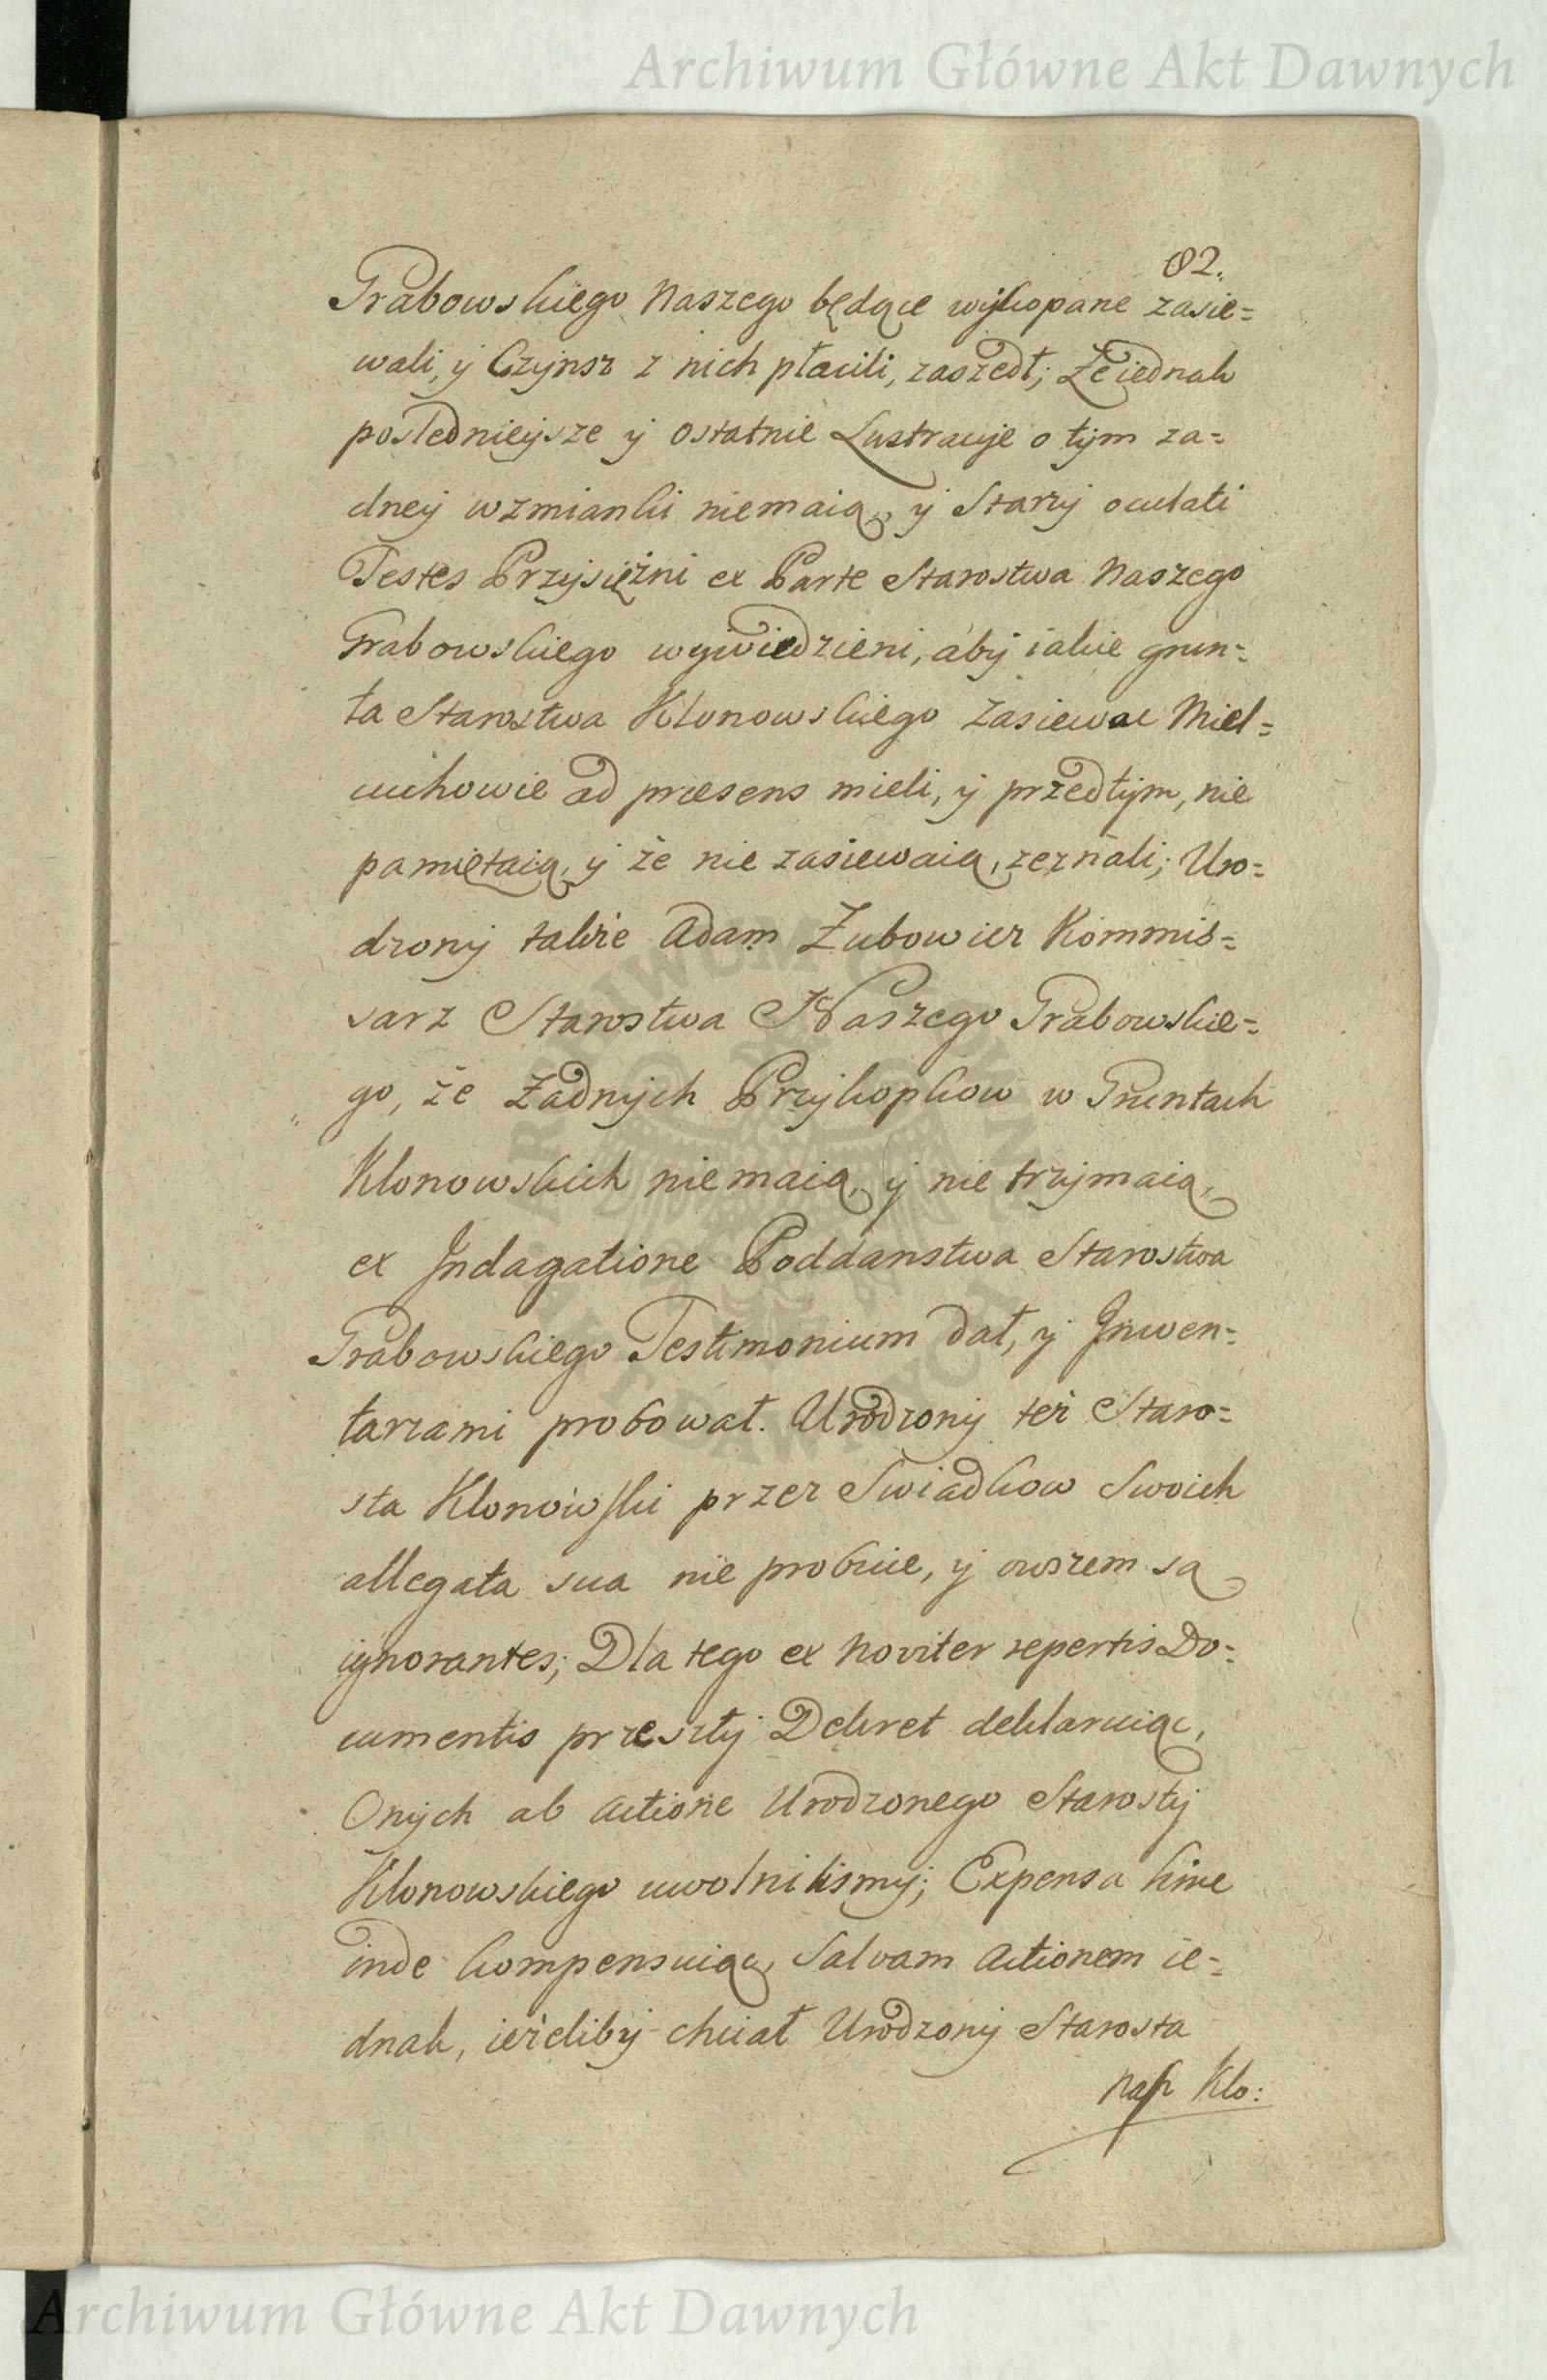 Archiwum Główne Akt Dawnych
82.
Grabowskiego Naszego będące wykopane zasie=
wali, y Czynsz z nich płacili, zaszedł; Że iednak
poslednieysze y Ostatnie Lustracye o tym za=
dney wzmianki niemaią, y Starzy oculati
Testes Przysiężni ex Parte Starostwa Naszego
Grabowskiego wywiedzieni, aby iakie grun=
ta Starostwa Klonowskiego zasiewac Miel=
cuchowie ad præsens mieli, y przedtym, nie
pamiętaią, y że nie zasiewaią, zeznali; Uro=
dzony także Adam Zubowicz Kommis=
sarz Starostwa Naszego Grabowskie=
go, że Żadnych Przykopkow w Gruntach
Klonowskich niemaią, y nie trzymaią,
ex Indagatione Poddanstwa Starostwa
Grabowskiego Testimonium dał, y Inwen=
tarzami probował. Urodzony też Staro=
sta Klonowski przez Swiadkow Swoich
allegata sua nie probuie, y owszem są
ignorantes; Dla tego ex Noviter repertis Do=
cumentis przeszły Dekret deklaruiąc,
Onych ab Actione Urodzonego Starosty
Klonowskiego uwolnilismy; Expensa hinc
inde kompensuiąc, Salvam Actionem ie=
dnak, ieżeliby chciał Urodzony Starosta
Nasz Klo:
Archiwum Główne Akt Dawnych